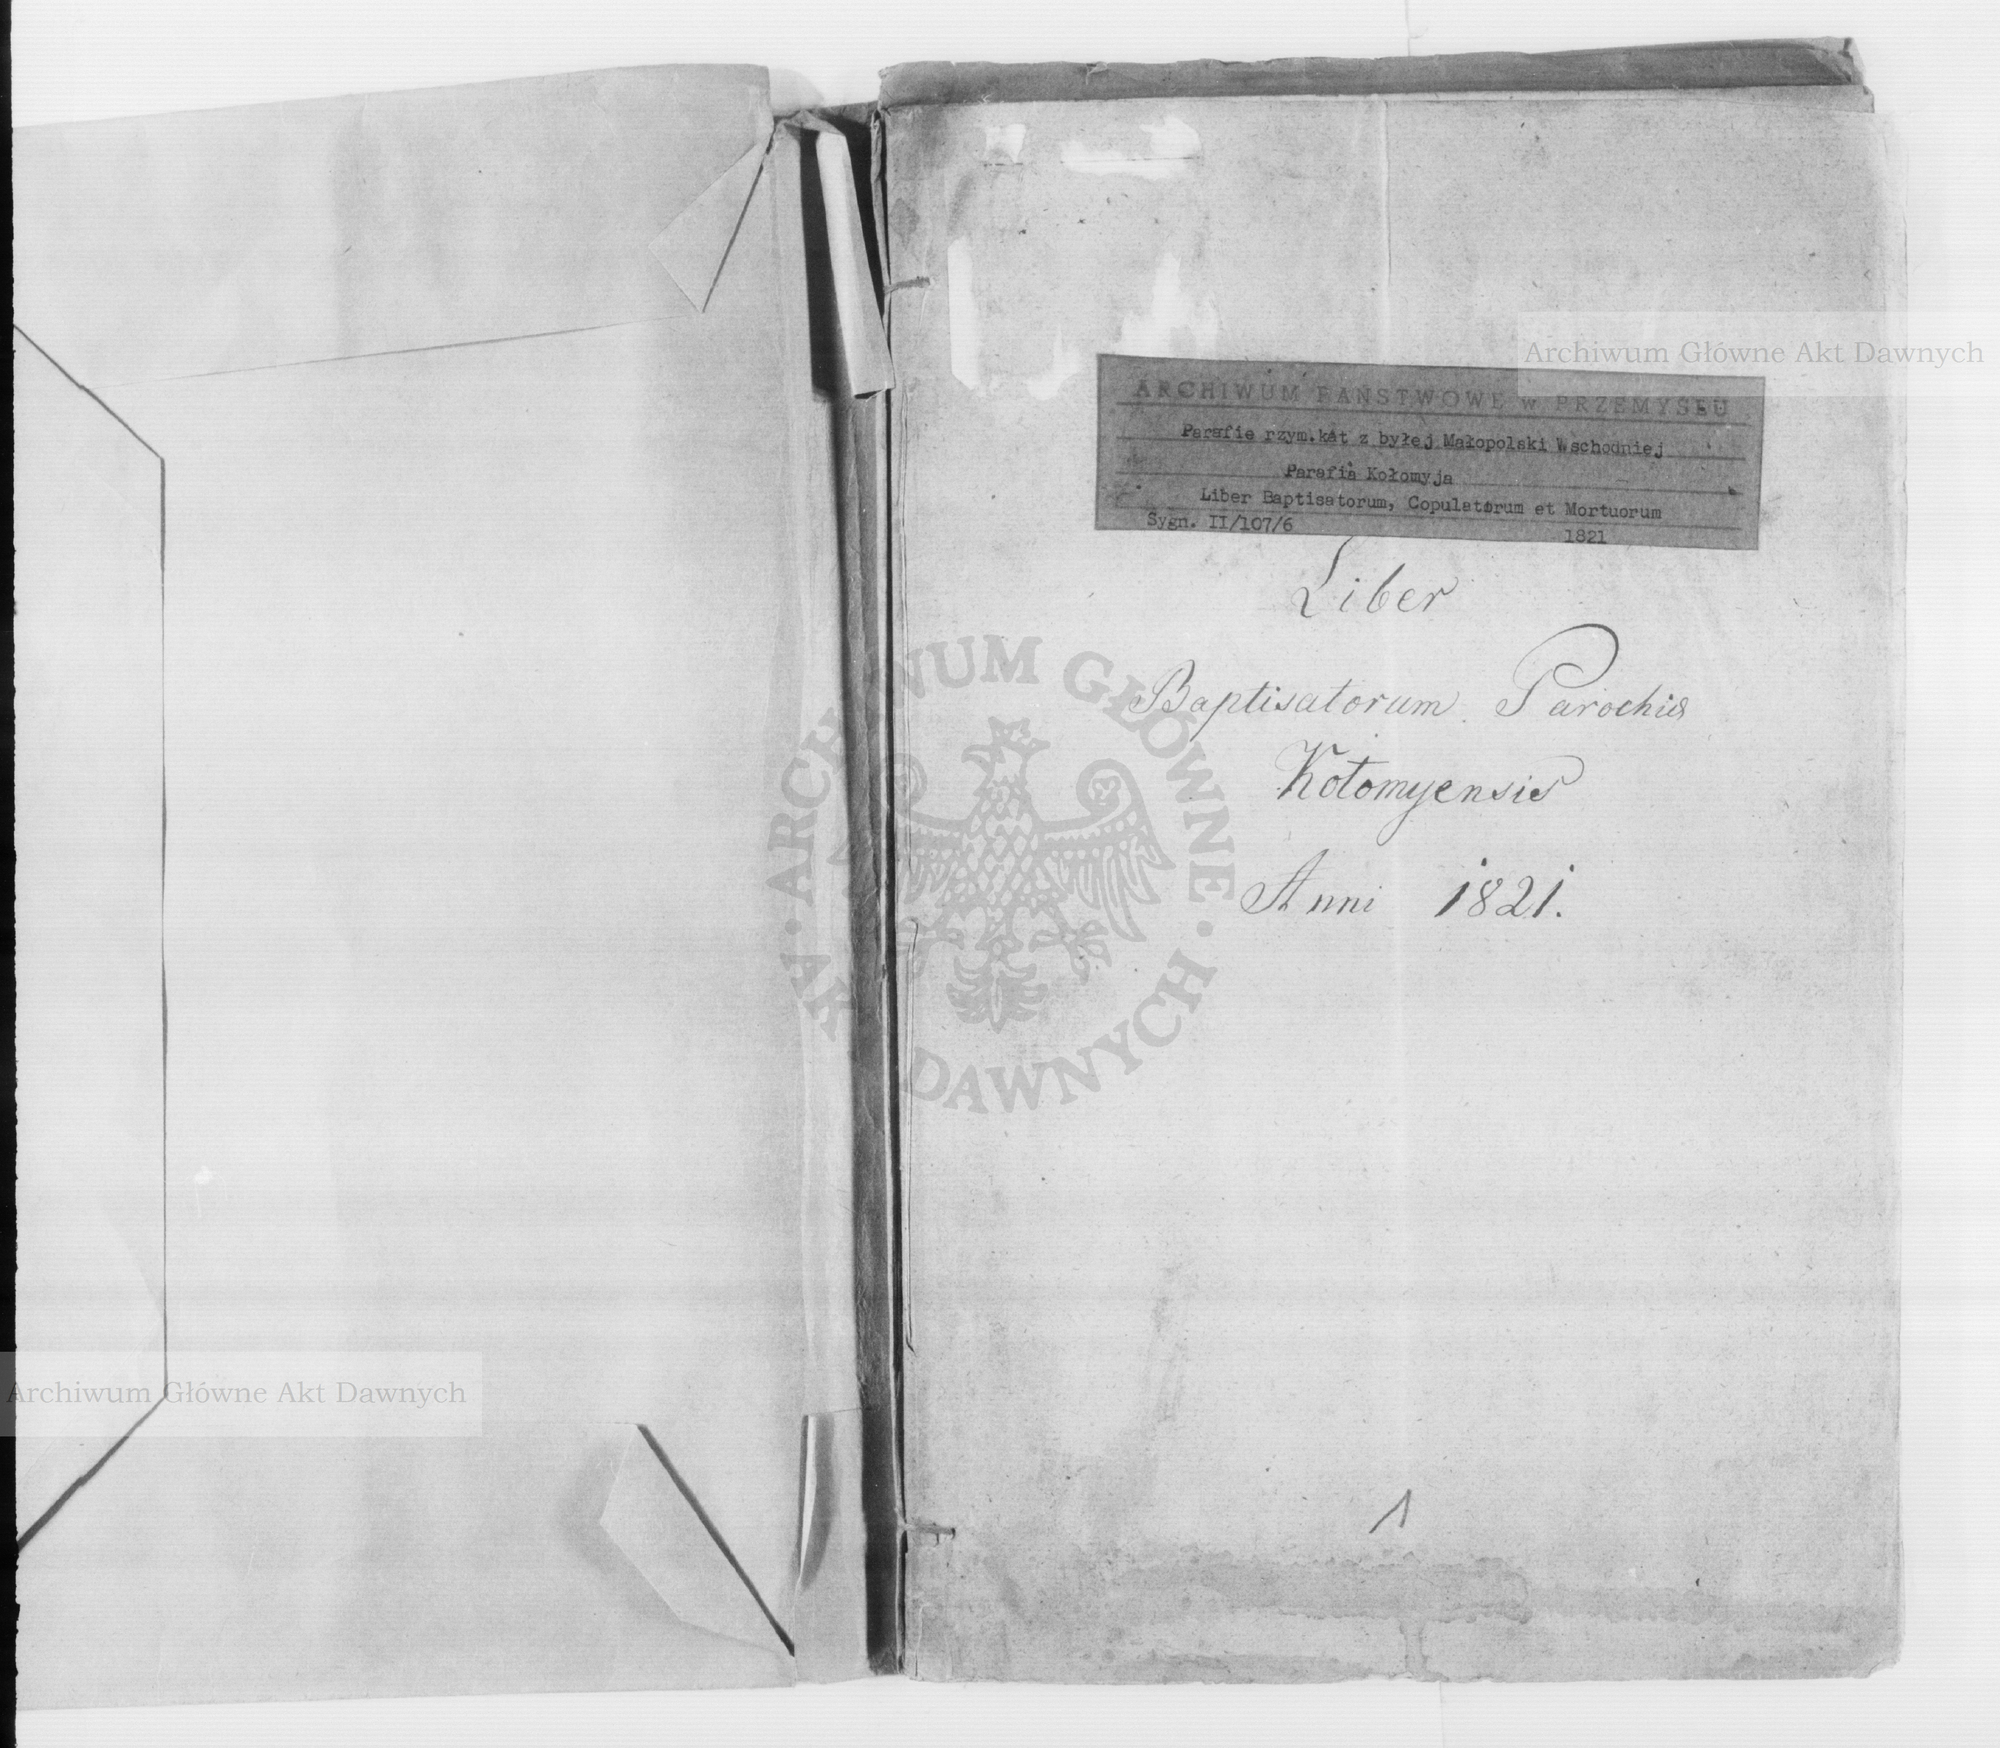 ARCHIWUM PAŃSTWOWE w PRZEMYŚLU
Parafie rzym.kat z byłej Małopolski Wschodniej
Parafia Kołomyja
Liber Baptisatorum, Copulatorum et Mortuorum
Sygn. II/107/6 1821
Liber
Baptisatorum Parochiæ
Kołomyensis
Anni 1821.
1
Archiwum Główne Akt Dawnych
ARCHIWUM GŁÓWNE AKT DAWNYCH
Archiwum Główne Akt Dawnych